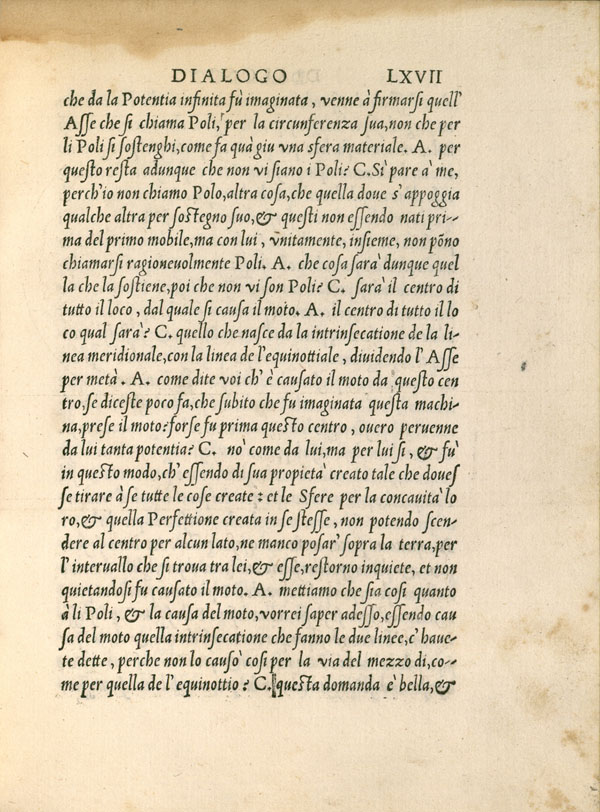 DIALOGO LXVII
che da la Potentia infinita fù imaginata, venne à firmarsi quell'
Asse che si chiama Poli, per la circunferenza sua, non che per
li Poli si sostenghi, come fa quà giu vna sfera materiale. A. per
questo resta adunque che non vi siano i Poli? C. Sì pare à me,
perch'io non chiamo Polo, altra cosa, che quella doue s'appoggia
qualche altra per sostegno suo, & questi non essendo nati pri-
ma del primo mobile, ma con lui, vnitamente, insieme, non põno
chiamarsi ragioneuolmente Poli. A. che cosa sarà dunque quel
la che la sostiene, poi che non vi son Poli? C. sarà il centro di
tutto il loco, dal quale si causa il moto. A. il centro di tutto il lo
co qual sarà? C. quello che nasce da la intrinsecatione de la li-
nea meridionale, con la linea de l'equinottiale, diuidendo l'Asse
per metà. A. come dite voi ch'è causato il moto da questo cen
tro, se diceste poco fa, che subito che fu imaginata questa machi-
na, prese il moto? forse fu prima questo centro, ouero peruenne
da lui tanta potentia? C. nò come da lui, ma per lui si, & fù
in questo modo, ch'essendo di sua propietà creato tale che doues
se tirare à se tutte le cose create: et le Sfere per la concauità lo
ro, & quella Perfettione creata in se stesse, non potendo scen-
dere al centro per alcun lato, ne manco posar' sopra la terra, per
l'interuallo che si troua tra lei, & esse, restorno inquiete, et non
quietandosi fu causato il moto. A. mettiamo che sia cosi quanto
à li Poli, & la causa del moto, vorrei saper adesso, essendo cau
sa del moto quella intrinsecatione che fanno le due linee, c'haue-
te dette, perche non lo causò cosi per la via del mezzo di, co-
me per quella de l'equinottio? C. questa domanda è bella, &